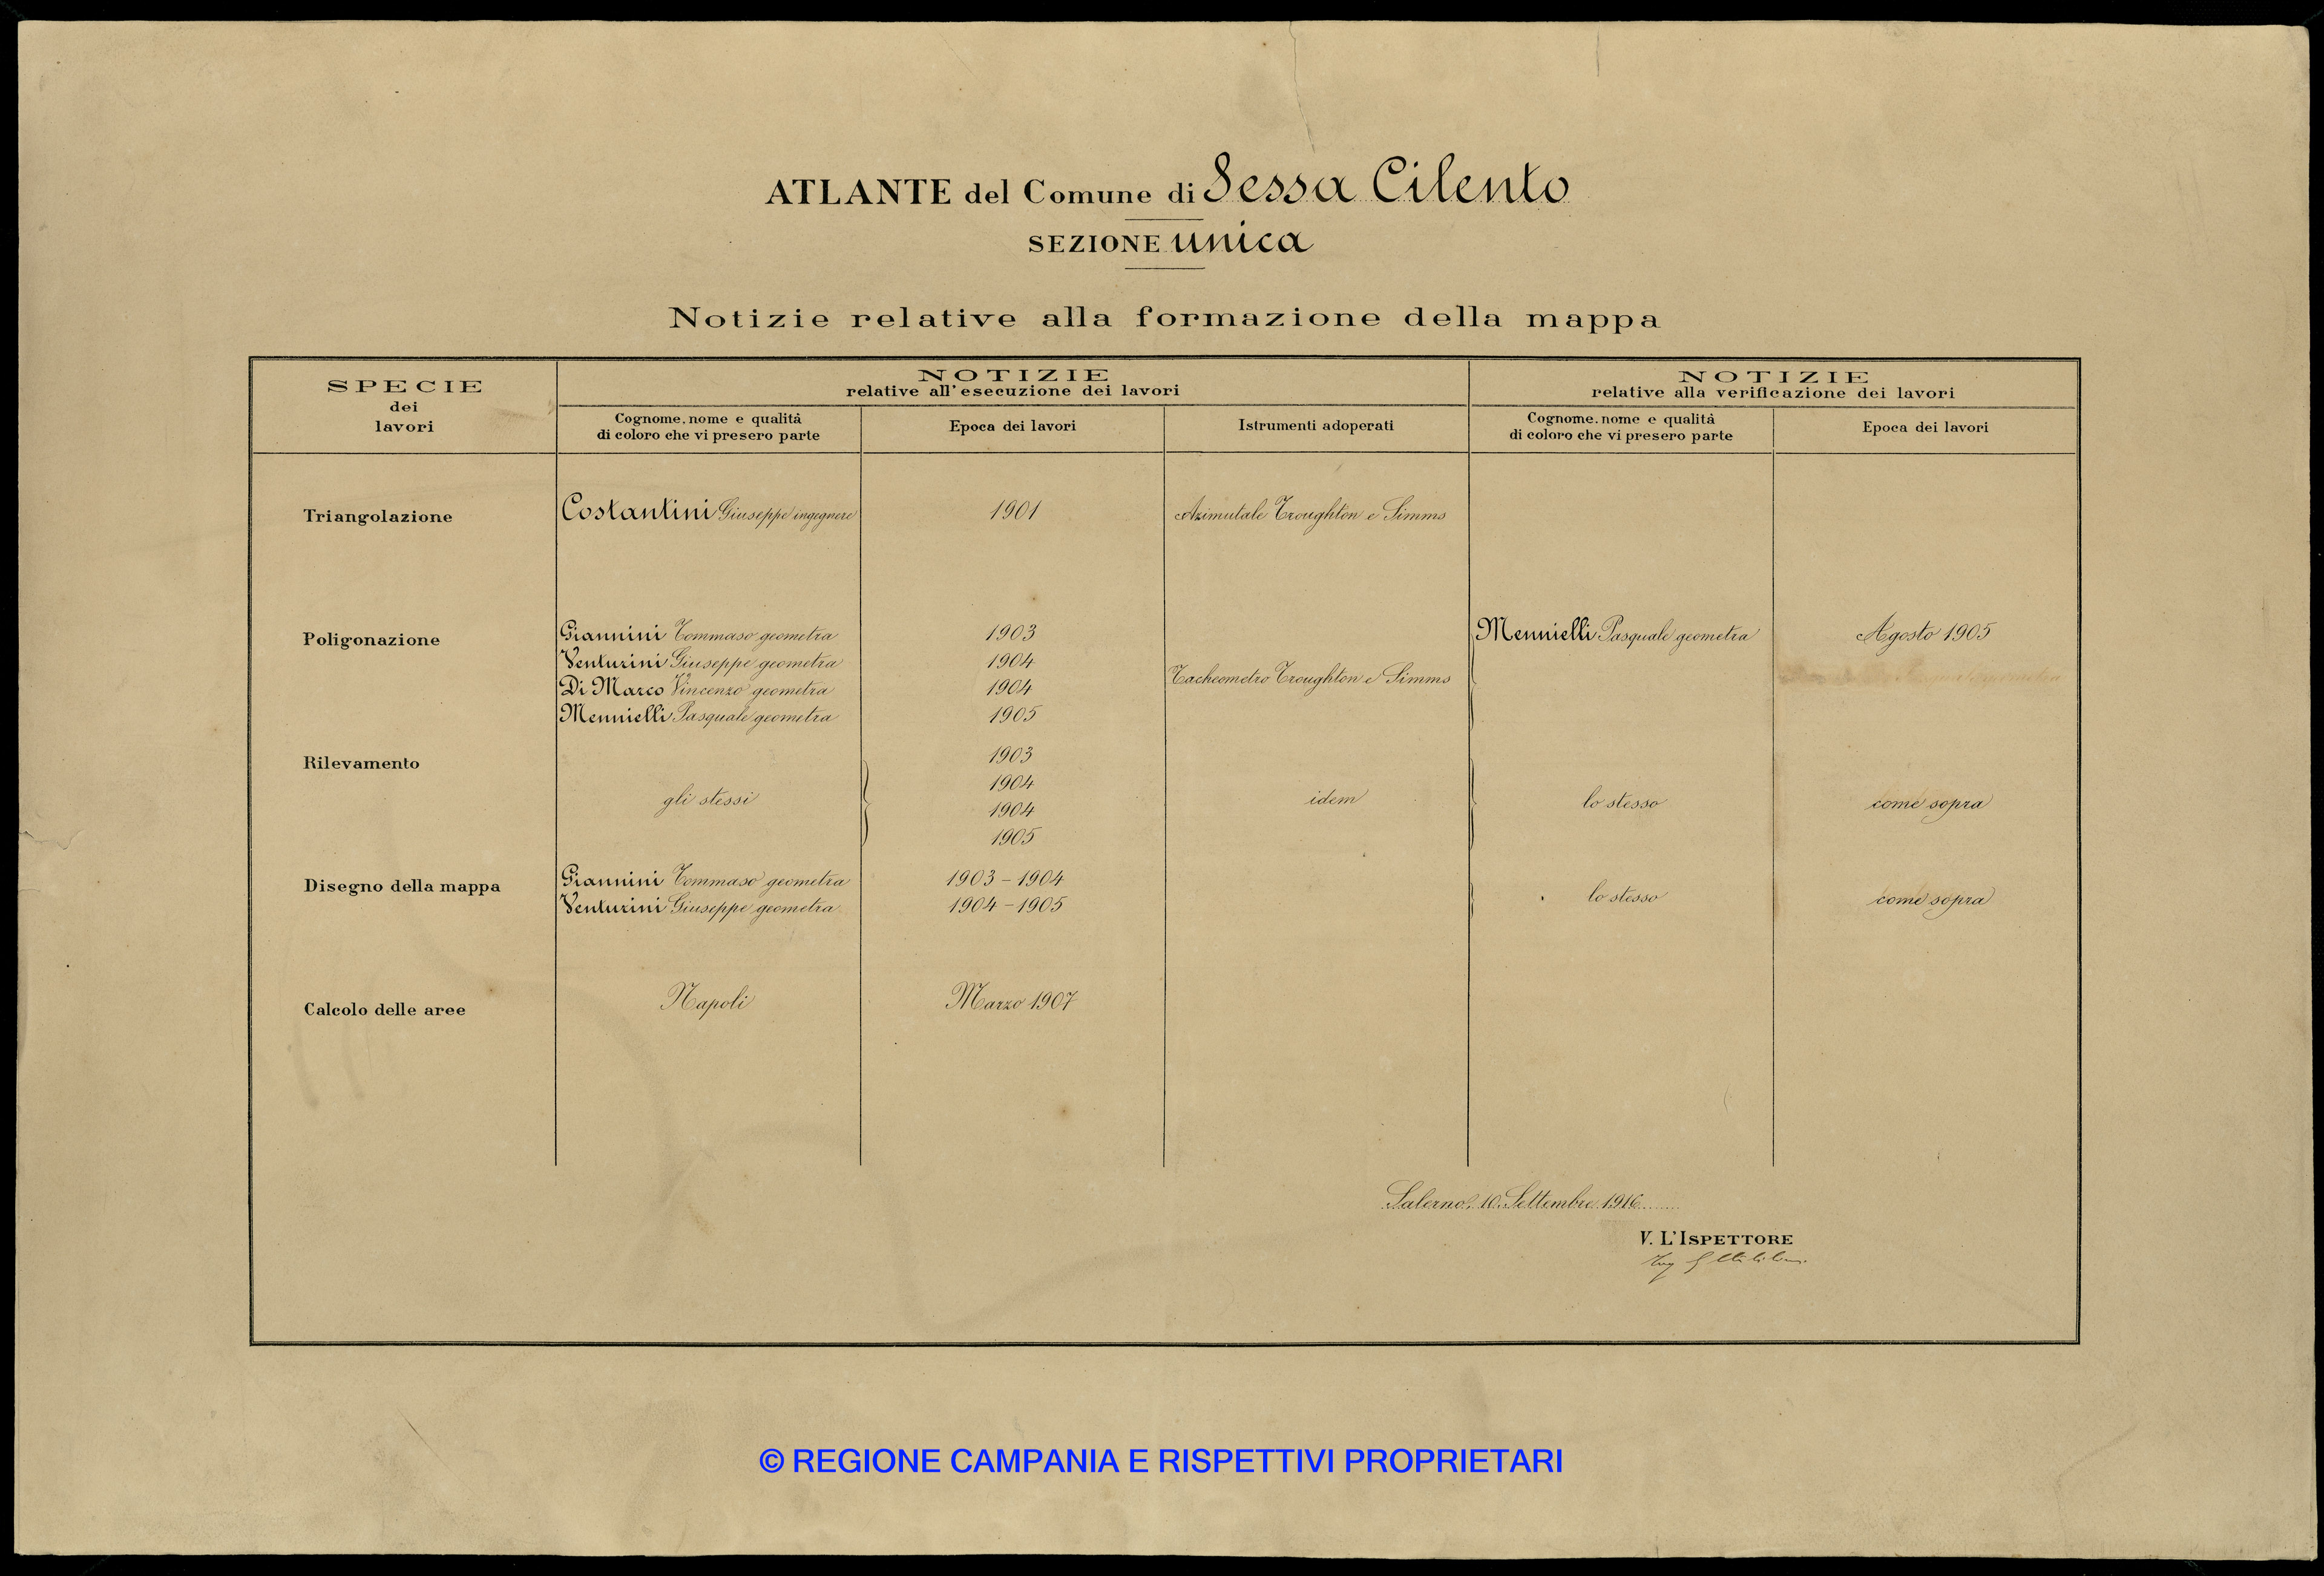 ATLANTE del Comune di Sessa Cilento
SEZIONE unica
Notizie relative alla formazione della mappa
SPECIE
dei
lavori
NOTIZIE
relative all'esecuzione dei lavori
NOTIZIE
relative alla verificazione dei lavori
Cognome, nome e qualità
di coloro che vi presero parte
Epoca dei lavori
Istrumenti adoperati
Cognome, nome e qualità
di coloro che vi presero parte
Epoca dei lavori
Triangolazione
Costantini Giuseppe ingegnere
1901
Azimutale Troughton e Simms
Poligonazione
Giannini Tommaso geometra
1903
Mennielli Pasquale geometra
Agosto 1905
Venturini Giuseppe geometra
1904
Di Marco Vincenzo geometra
1904
Tacheometro Troughton e Simms
Mennielli Pasquale geometra
1905
Rilevamento
gli stessi
1903
1904
1904
1905
idem
lo stesso
come sopra
Disegno della mappa
Giannini Tommaso geometra
1903 - 1904
Venturini Giuseppe geometra
1904 - 1905
lo stesso
come sopra
Calcolo delle aree
Napoli
Marzo 1907
Salerno, 10 Settembre 1916
V. L'ISPETTORE
Ing
© REGIONE CAMPANIA E RISPETTIVI PROPRIETARI